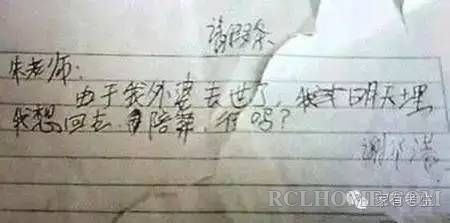 请假条
朱老师:
由于我外婆去世了,我 明天埋
我想回去 陪葬,行吗?
谢
RCLHOME.COM
家有考生